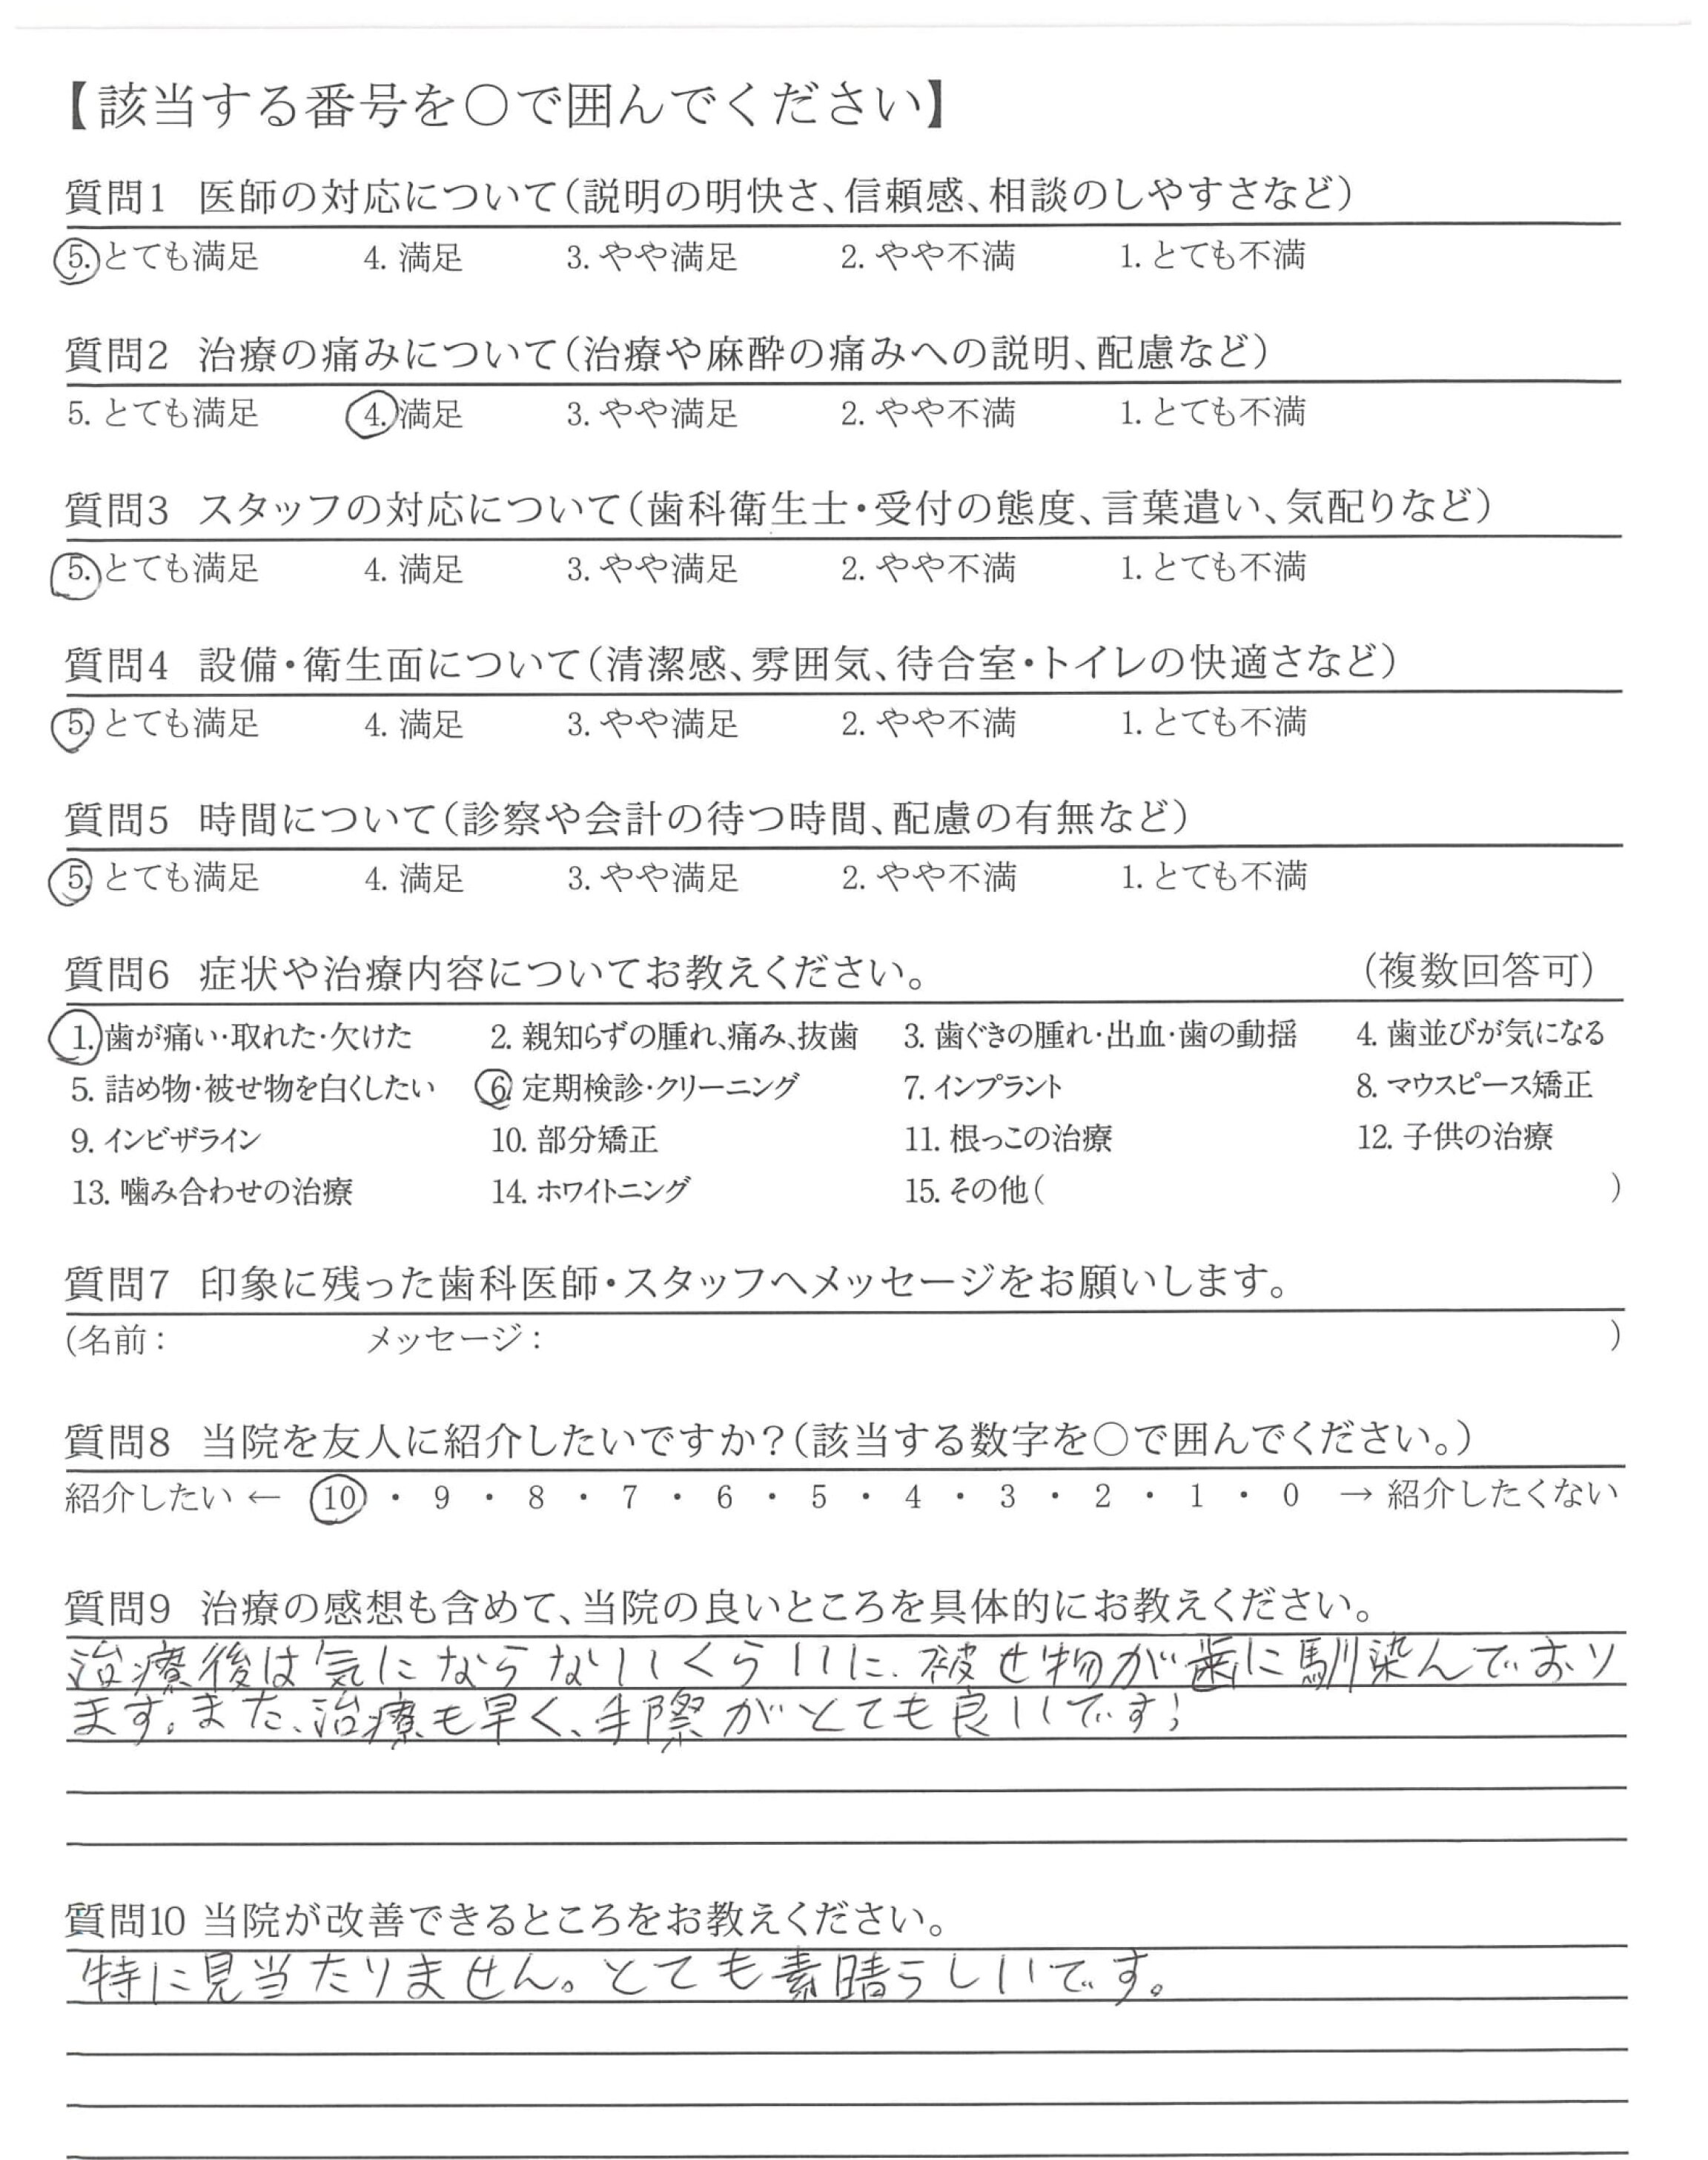 【該当する番号を○で囲んでください】
質問1 医師の対応について(説明の明快さ、信頼感、相談のしやすさなど)
5. とても満足 4. 満足 3. やや満足 2. やや不満 1. とても不満
質問2 治療の痛みについて(治療や麻酔の痛みへの説明、配慮など)
5. とても満足 4. 満足 3. やや満足 2. やや不満 1. とても不満
質問3 スタッフの対応について(歯科衛生士・受付の態度、言葉遣い、気配りなど)
5. とても満足 4. 満足 3. やや満足 2. やや不満 1. とても不満
質問4 設備・衛生面について(清潔感、雰囲気、待合室・トイレの快適さなど)
5. とても満足 4. 満足 3. やや満足 2. やや不満 1. とても不満
質問5 時間について(診察や会計の待つ時間、配慮の有無など)
5. とても満足 4. 満足 3. やや満足 2. やや不満 1. とても不満
質問6 症状や治療内容についてお教えください。 (複数回答可)
1. 歯が痛い・取れた・欠けた 2. 親知らずの腫れ、痛み、抜歯 3. 歯ぐきの腫れ・出血・歯の動揺 4. 歯並びが気になる
5. 詰め物・被せ物を白くしたい 6. 定期検診・クリーニング 7. インプラント 8. マウスピース矯正
9. インビザライン 10. 部分矯正 11. 根っこの治療 12. 子供の治療
13. 噛み合わせの治療 14. ホワイトニング 15. その他( )
質問7 印象に残った歯科医師・スタッフへメッセージをお願いします。
(名前: メッセージ: )
質問8 当院を友人に紹介したいですか?(該当する数字を○で囲んでください。)
紹介したい ← 10 ・ 9 ・ 8 ・ 7 ・ 6 ・ 5 ・ 4 ・ 3 ・ 2 ・ 1 ・ 0 → 紹介したくない
質問9 治療の感想も含めて、当院の良いところを具体的にお教えください。
治療後は気にならないくらいに、被せ物が歯に馴染んでおり
ます。また、治療も早く、手際がとても良いです!
質問10 当院が改善できるところをお教えください。
特に見当たりません。とても素晴らしいです。